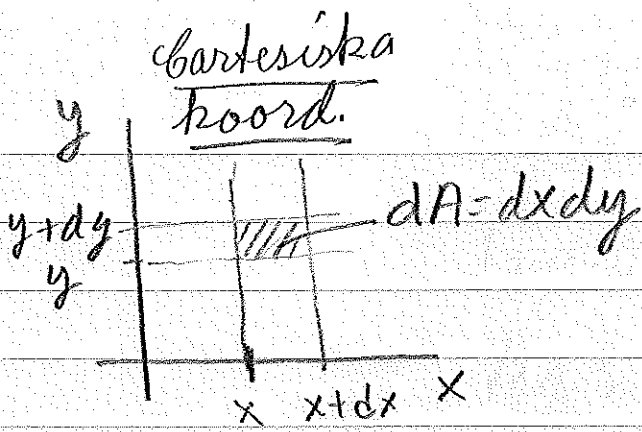 Cartesiska
koord.
y
y+dy
dA=dxdy
y
x x+dx x